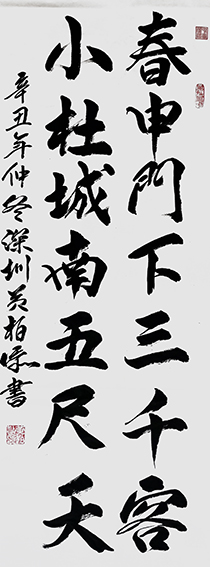 春申門下三千客
小杜城南五尺天
辛丑年仲冬深圳黄柏添書